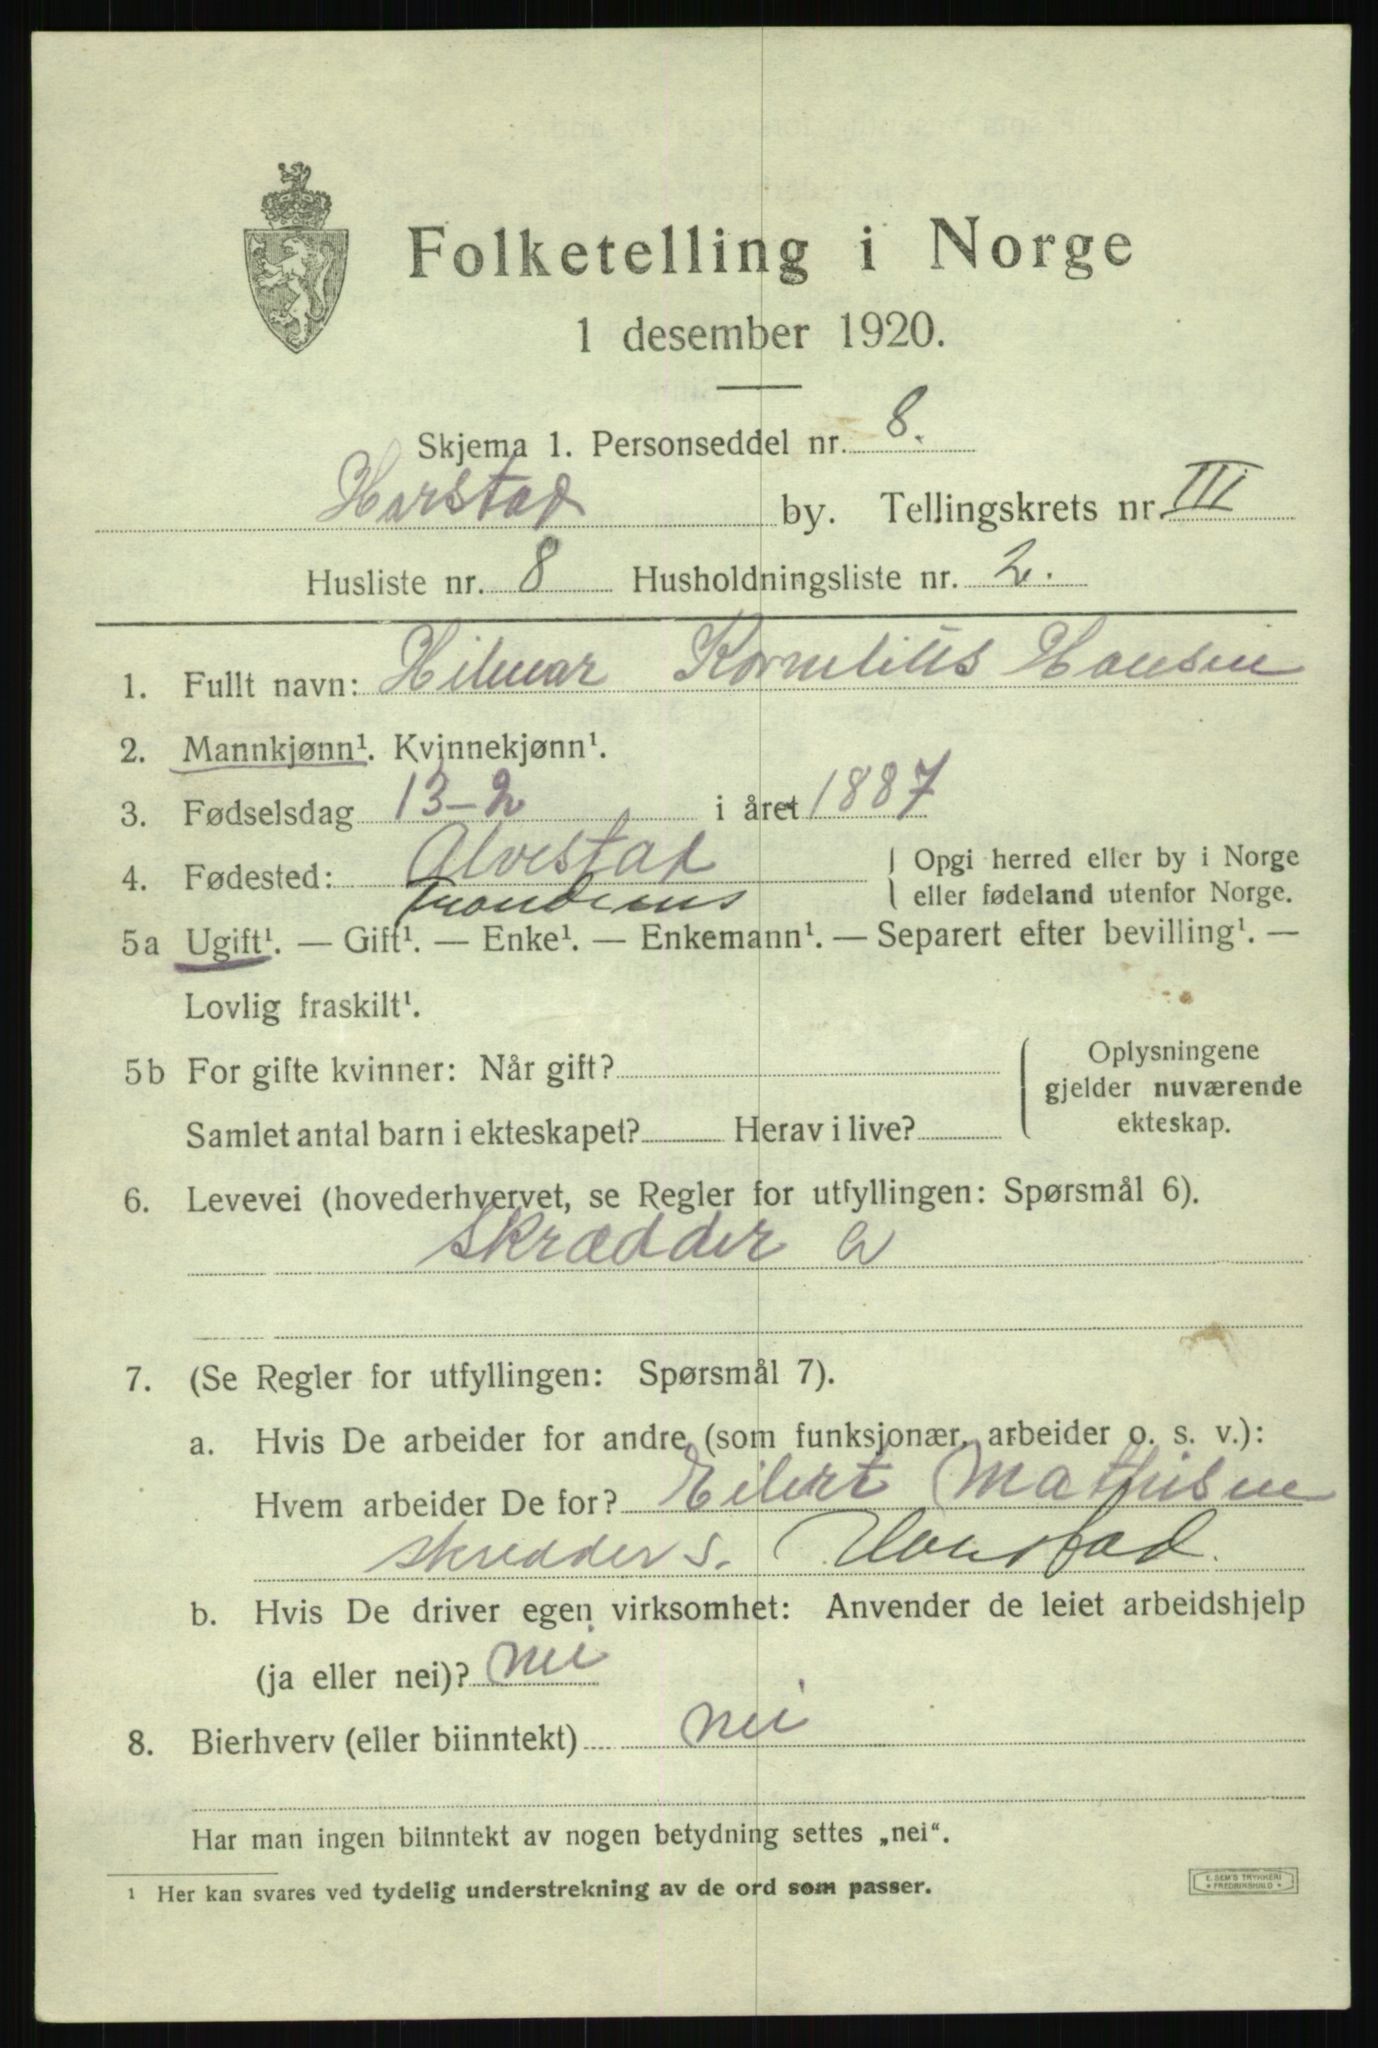 Folketelling i Norge
1 desember 1920.
Skjema 1. Personseddel nr. 8.
Harstad by. Tellingskrets nr. III
Husliste nr. 8 Husholdningsliste nr. 2.
1. Fullt navn: Hilmar Kornelius Hansen
2. Mannkjønn¹. Kvinnekjønn¹.
3. Fødselsdag 13-2 i året 1887
4. Fødested: Alvestad
Opgi herred eller by i Norge
eller fødeland utenfor Norge.
Trondenes
5a Ugift¹. — Gift¹. — Enke¹. — Enkemann¹. — Separert efter bevilling¹. —
Lovlig fraskilt¹.
5b For gifte kvinner: Når gift?
Samlet antal barn i ekteskapet? Herav i live?
Oplysningene
gjelder nuværende
ekteskap.
6. Levevei (hovederhvervet, se Regler for utfyllingen: Spørsmål 6).
Skrædder a
7. (Se Regler for utfyllingen: Spørsmål 7).
a. Hvis De arbeider for andre (som funksjonær, arbeider o. s. v.):
Hvem arbeider De for? Eilert Mathisen
skredder s. Harstad.
b. Hvis De driver egen virksomhet: Anvender de leiet arbeidshjelp
(ja eller nei)? nei
8. Bierhverv (eller biinntekt) nei
Har man ingen biinntekt av nogen betydning settes „nei“.
¹ Her kan svares ved tydelig understrekning av de ord som passer.
E. SEM'S TRYKKERI
* FREDRIKSHALD *